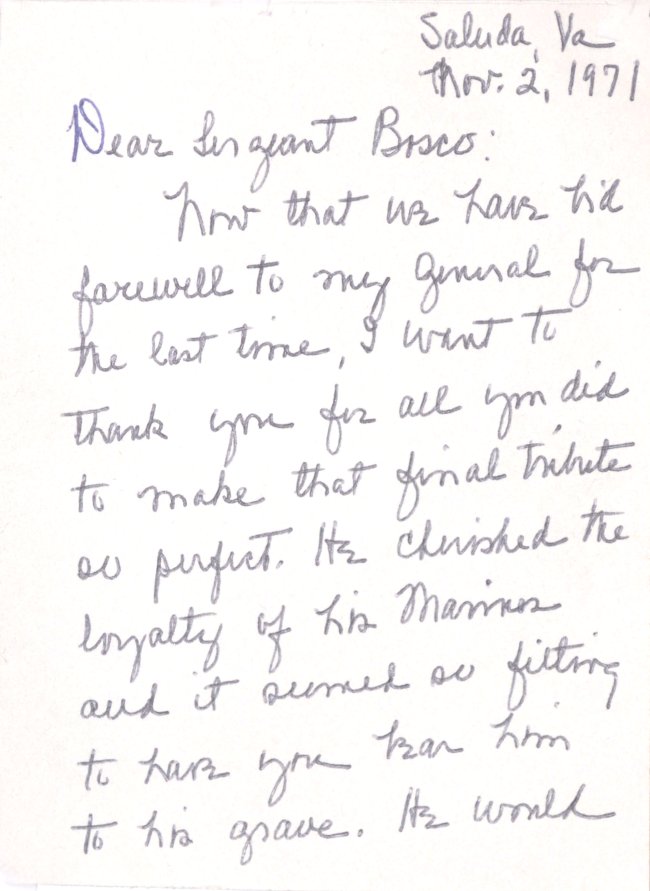 Saluda, Va
Nov. 2, 1971
Dear Sergeant Bosco:
Now that we have bid
farewell to my General for
the last time, I want to
thank you for all you did
to make that final tribute
so perfect. He cherished the
loyalty of his Marines
and it seemed so fitting
to have you bear him
to his grave. He would